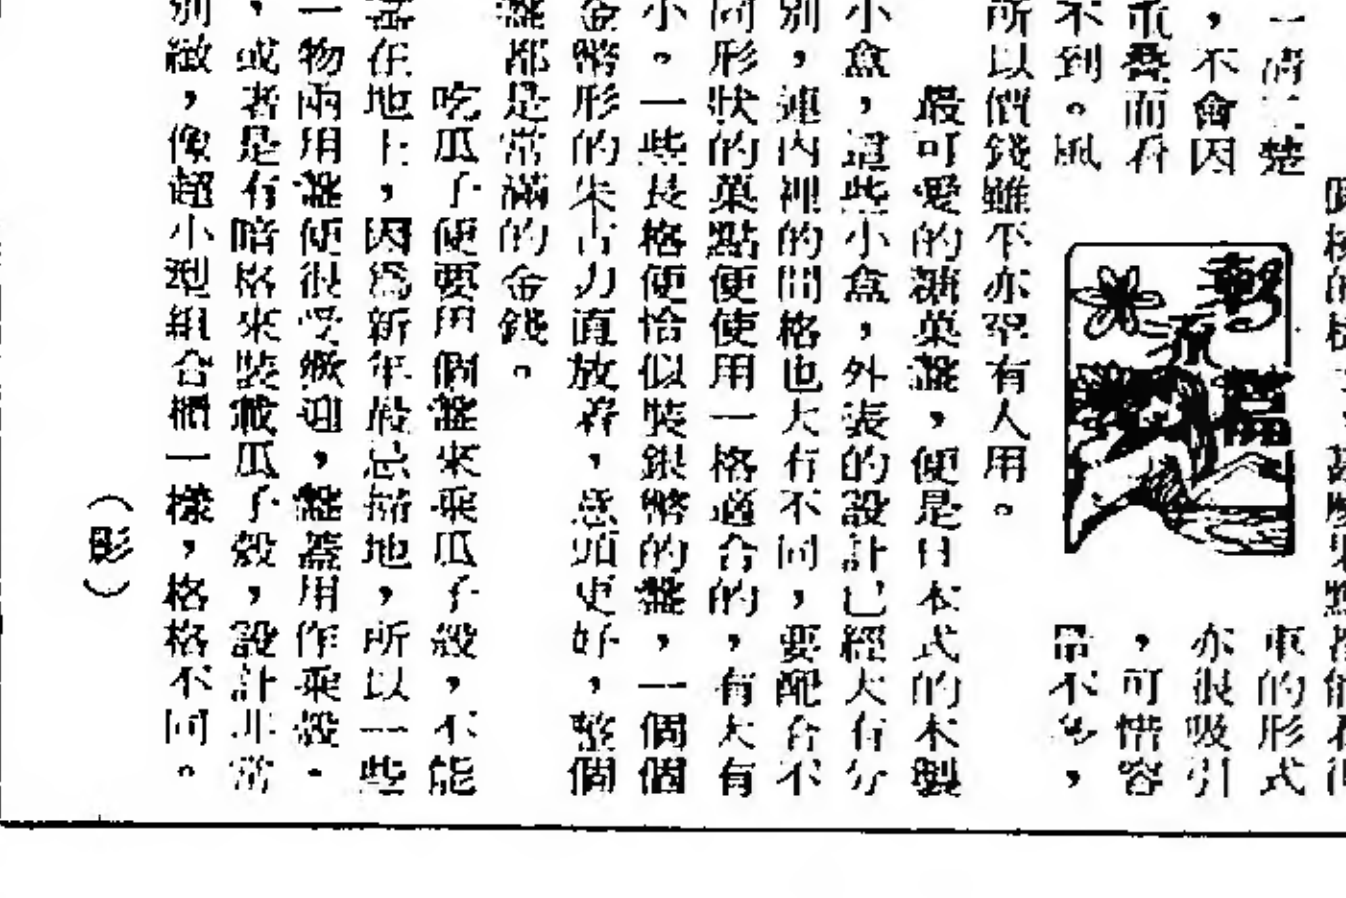 一清二楚
，不會因
重叠而看
不到。風
篇
車的形式
亦很吸引
，可惜容
不多，
所以價錢雖平亦罕有人用。
最可愛的糖菓盤，便是日本式的木製
小盒，這些小盒，外表的設計已經大有分
別，連內裡的間格也大有不同，要配合不
同形狀的菓點便使用一格適合的，有大有
小。一些長格便恰似裝銀幣的盤，一個個
金幣形的朱古力直放着，意頭更好，整個
盤都是常滿的金錢。
吃瓜子便要用個盤來乘瓜子殼，不能
在地上，因爲新年最忌掃地，所以一些
一物兩用盤便很受歡迎，盤蓋用作乘殼，
，或者是有暗格來裝載瓜子殼，設計非常
別緻，像超小型組合櫃一樣，格格不同。
（彤）